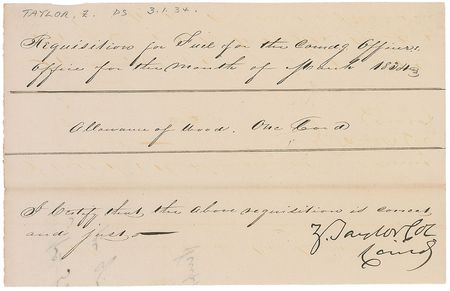 TAYLOR, Z. DS 3.1.34.
Requisition for Fuel for the Comdg Officers
Office for the Month of March 1834
Allowance of Wood. One Cord
I Certify that the above requisition is correct
and just
Z. Taylor Col
Comdg